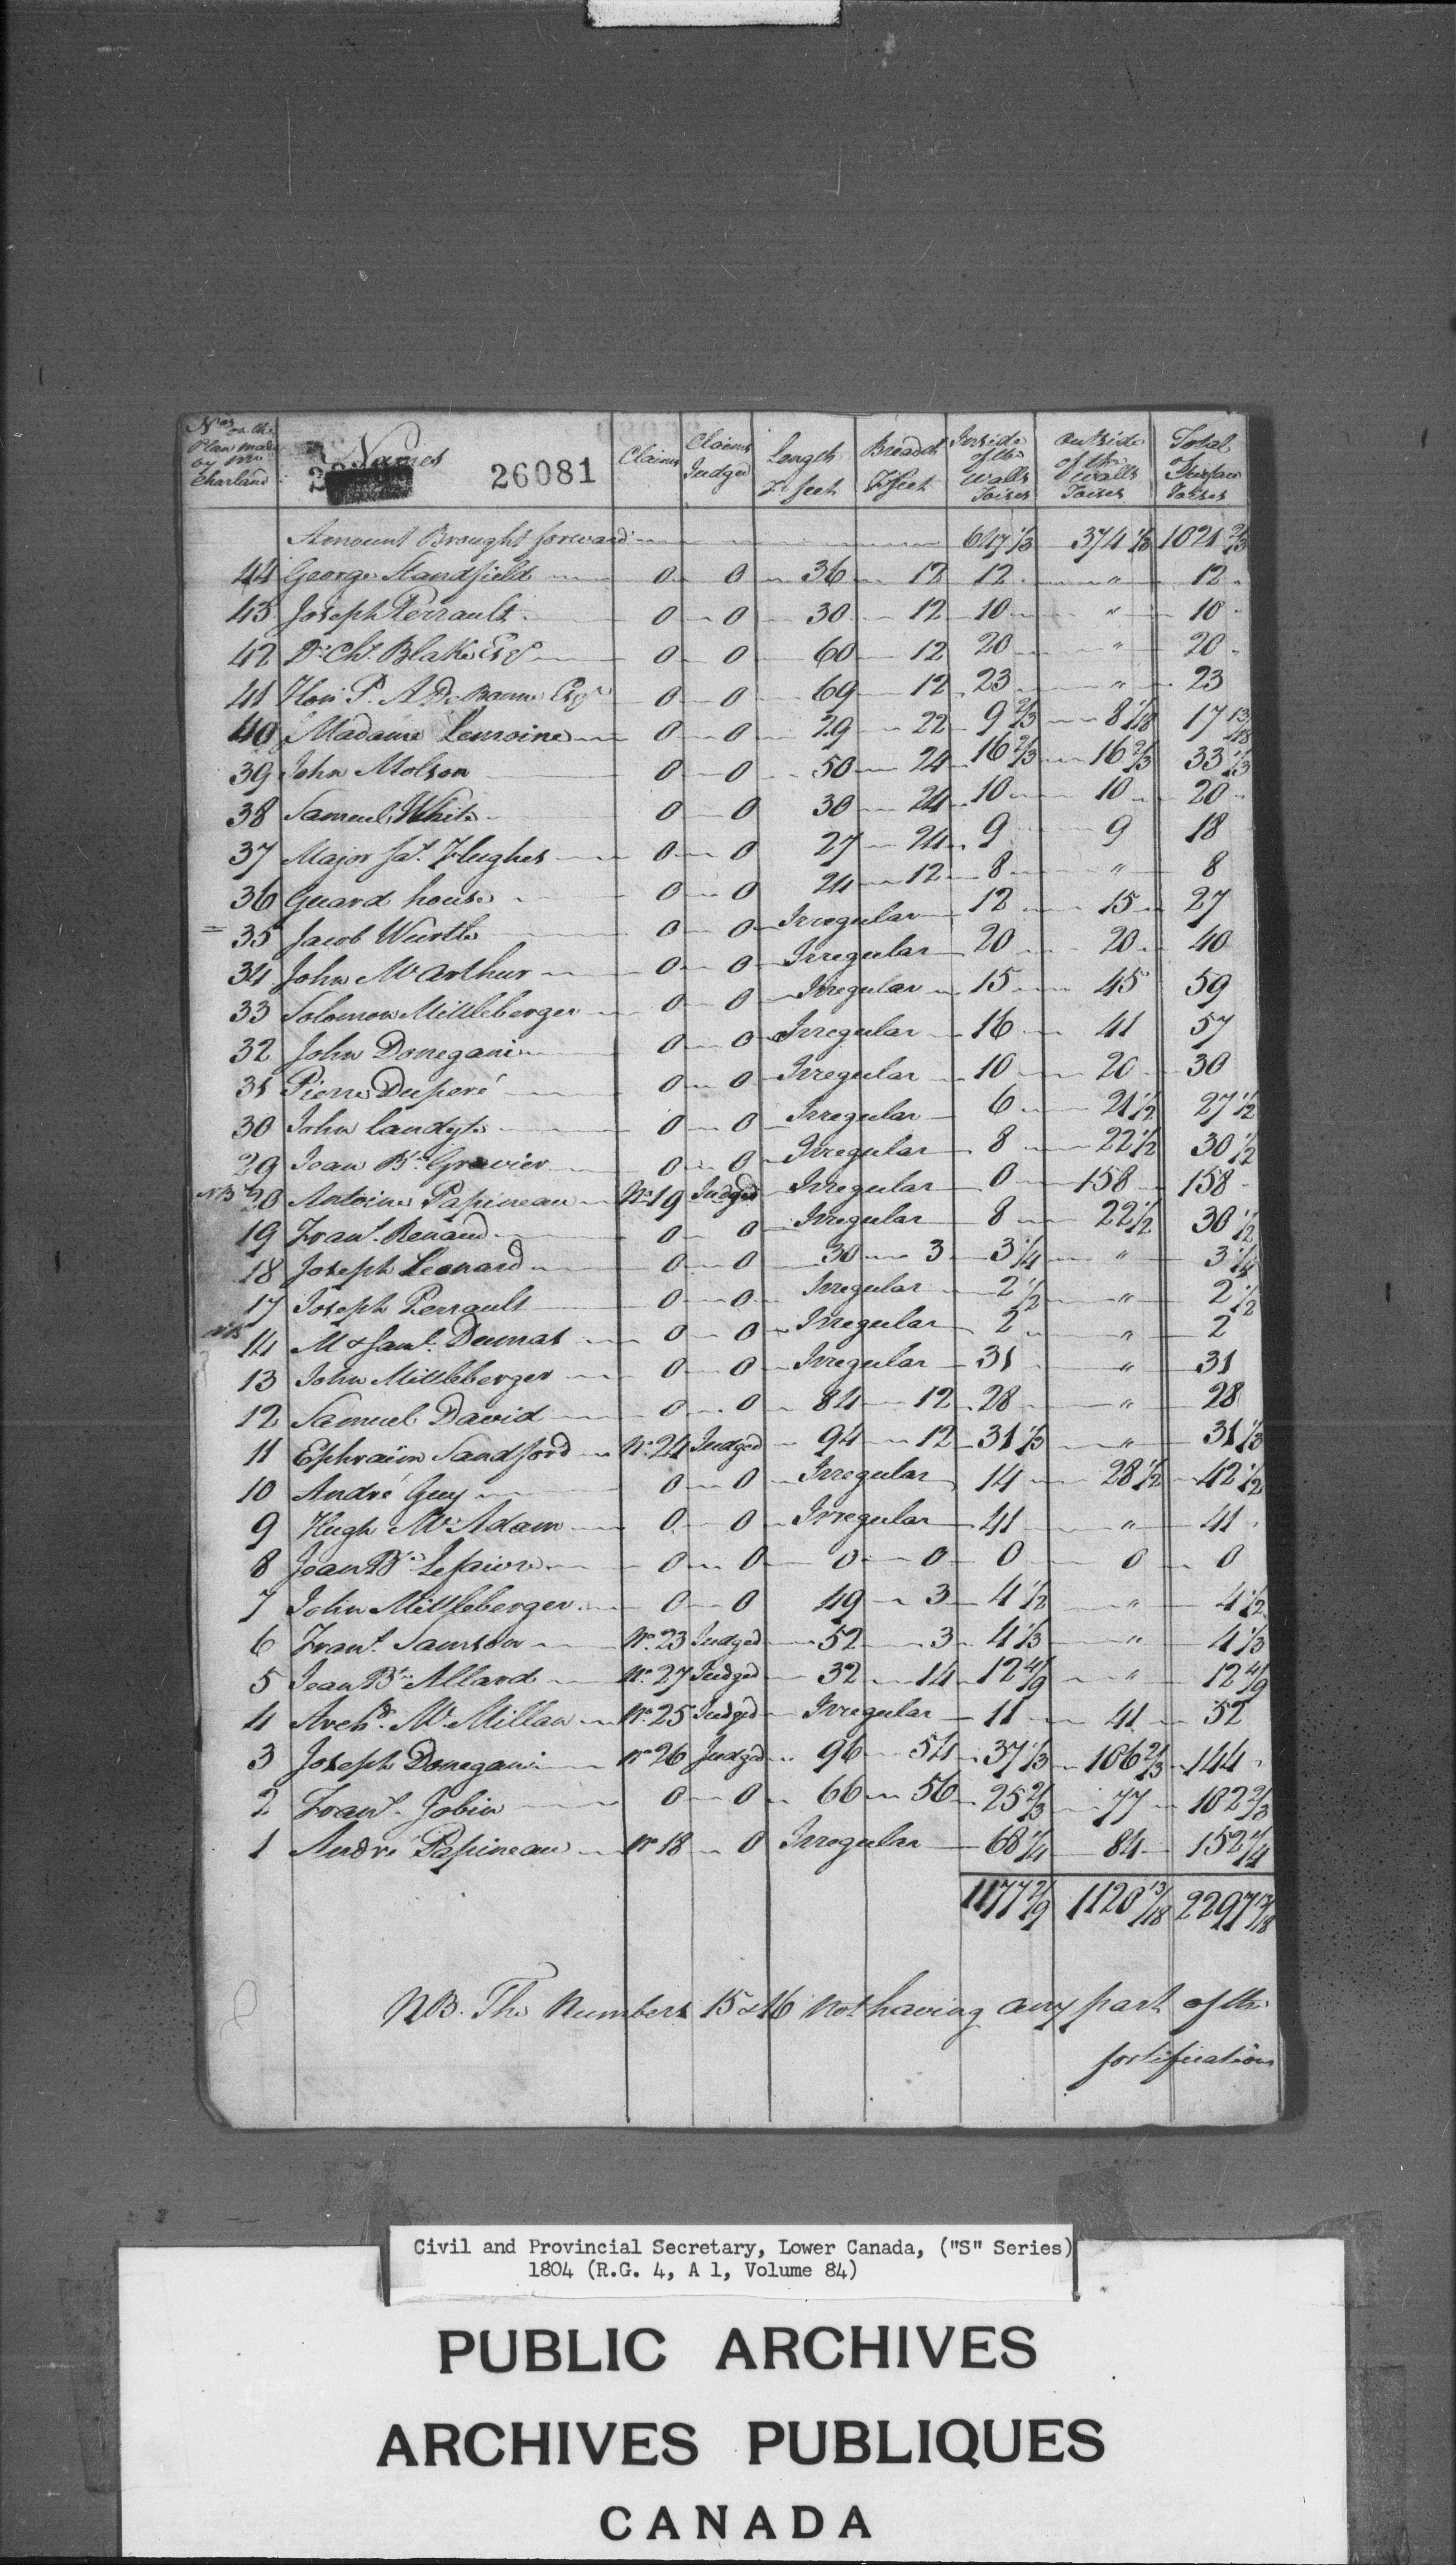 Nos on the Plan made by Mr Charland | Names 26081 | Claims | Claims Judged | Length In feet | Breadth In feet | Inside of the walls Toises | Outside of the walls Toises | Total of Surface Toises
Amount Brought forward 647 1/3 374 1/3 1021 2/3
44 George Standfield 0 0 36 12 12 " 12
43 Joseph Perrault 0 0 30 12 10 " 10
42 Dr. Chs. Blake Esqr 0 0 60 12 20 " 20
41 Hon. P. A. De Bonne Esqr 0 0 69 12 23 " 23
40 Madame Lemoine 0 0 29 22 9 2/3 8 1/18 17 13/18
39 John Molson 0 0 50 24 16 2/3 16 2/3 33 1/3
38 Samuel White 0 0 30 24 10 10 20
37 Major Jas. Hughes 0 0 27 24 9 9 18
36 Guard house 0 0 24 12 8 " 8
35 Jacob Wurtle 0 0 Irregular 12 15 27
34 John McArthur 0 0 Irregular 20 20 40
33 Solomon Mittleberger 0 0 Irregular 15 45 59
32 John Donegani 0 0 Irregular 16 41 57
31 Pierre Duperé 0 0 Irregular 10 20 30
30 John Landyts 0 0 Irregular 6 21 1/2 27 1/2
29 Jean Bte. Gravier 0 0 Irregular 8 22 1/2 30 1/2
NB 20 Antoine Papineau No. 19 Judged Irregular 0 158 158
19 Frans. Renaud 0 0 Irregular 8 22 1/2 30 1/2
18 Joseph Leonard 0 0 30 3 3 1/4 " 3 1/4
17 Joseph Perrault 0 0 Irregular 2 1/2 " 2 1/2
NB 14 M & Saml. Dumas 0 0 Irregular 2 " 2
13 John Mittleberger 0 0 Irregular 31 " 31
12 Samuel David 0 0 84 12 28 " 28
11 Ephraim Sandford No. 24 Judged 94 12 31 1/3 " 31 1/3
10 André Guy 0 0 Irregular 14 28 1/2 42 1/2
9 Hugh McAdam 0 0 Irregular 41 " 41
8 Jean Bte. Lefaivre 0 0 0 0 0 0 0
7 John Mittleberger 0 0 49 3 4 1/2 " 4 1/2
6 Frans. Samson No. 23 Judged 52 3 4 1/3 " 4 1/3
5 Jean Bte. Allard No. 27 Judged 32 14 12 4/9 " 12 4/9
4 Archd. McMillan No. 25 Judged Irregular 11 41 52
3 Joseph Donegani No 26 Judged 96 54 37 1/3 106 2/3 144
2 Frans. Jobin 0 0 66 56 25 2/3 77 102 2/3
1 André Papineau No 18 0 Irregular 68 1/4 84 152 1/4
1177 2/9 1120 13/18 2297 17/18
NB. The Numbers 15 & 16 not having any part of the
fortifications
Civil and Provincial Secretary, Lower Canada, ("S" Series)
1804 (R.G. 4, A 1, Volume 84)
PUBLIC ARCHIVES
ARCHIVES PUBLIQUES
CANADA